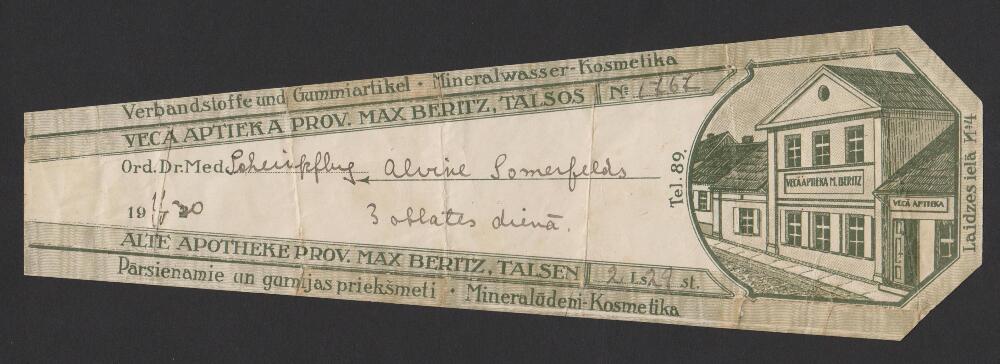 Verbandstoffe und Gummiartikel · Mineralwasser-Kosmetika
VECA APTIEKA PROV. MAX BERITZ, TALSOS № 1767
Ord. Dr. Med. Scheupflug Alvine Somerfelds
19 30
3 oblates dienā.
ALTE APOTHEKE PROV. MAX BERITZ, TALSEN 2 Ls 29 st.
Pārsienamie un gumijas priekšmeti · Mineralūdeņi-Kosmetika
Tel. 89.
VECĀ APTIEKA M. BERITZ
VECĀ APTIEKA
Laidzes ielā №4